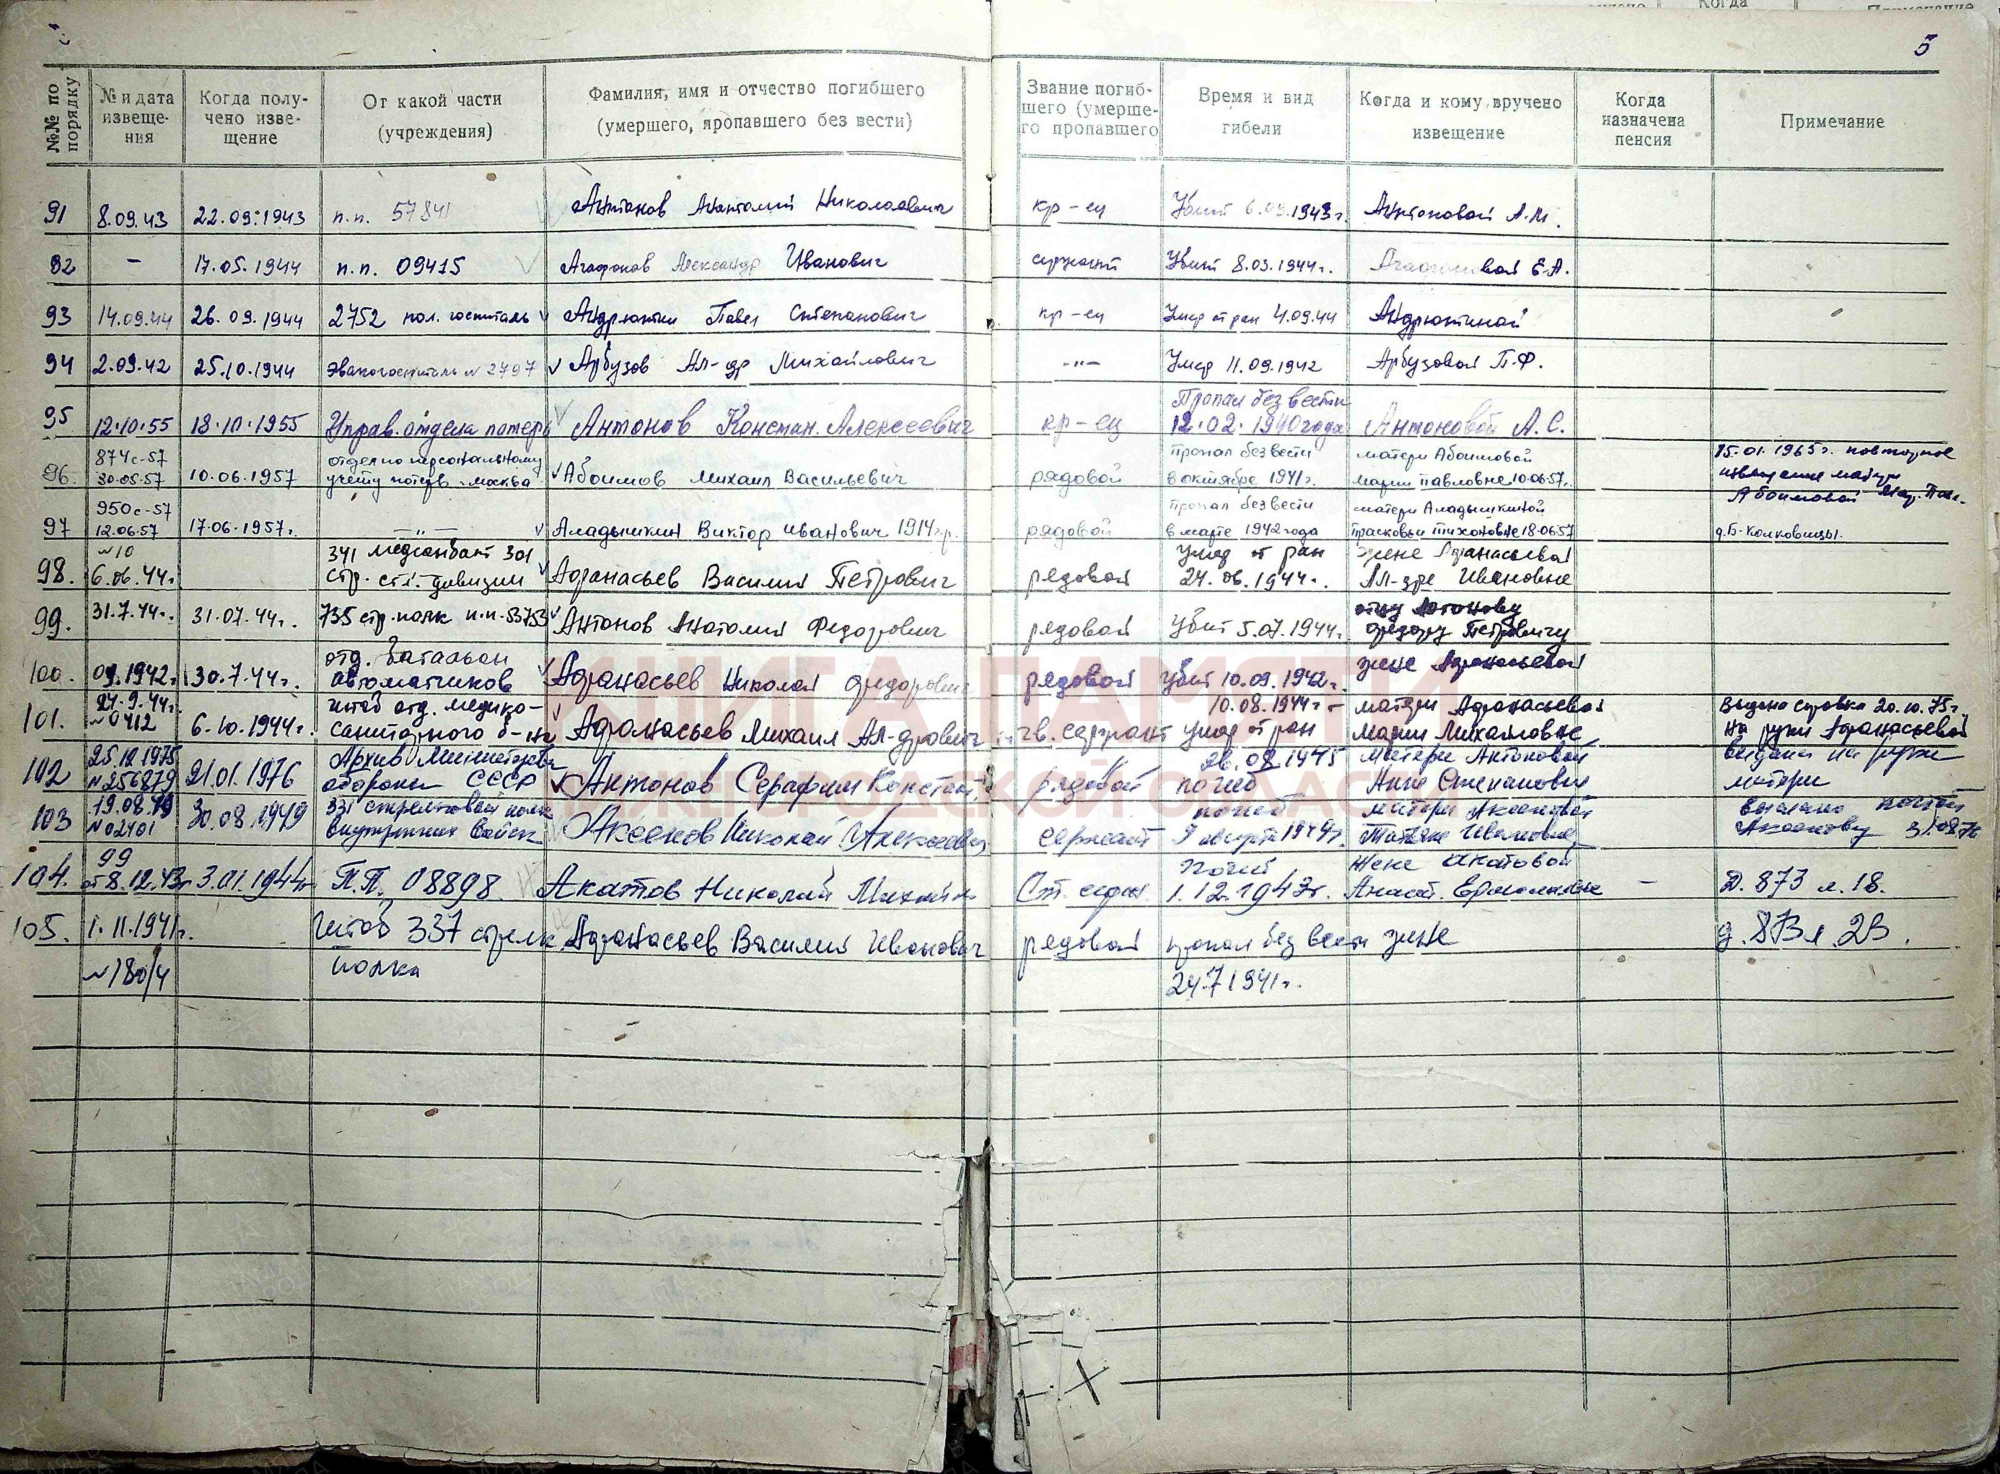 5
№№ по порядку
№ и дата извещения
Когда получено извещение
От какой части (учреждения)
Фамилия, имя и отчество погибшего (умершего, пропавшего без вести)
Звание погибшего (умершего пропавшего
Время и вид гибели
Когда и кому вручено извещение
Когда назначена пенсия
Примечание
91 8.09.43 22.09.1943 п.п. 57841 Антонов Анатолий Николаевич кр-ец Убит 6.09.1943г. Антоновой А.М.
92 – 17.05.1944 п.п. 09415 Агафонов Александр Иванович сержант Убит 8.03.1944г. Агафоновой Е.А.
93 14.09.44 26.09.1944 2752 пол. госпиталь Андрюткин Павел Степанович кр-ец Умер от ран 4.09.44 Андрюткиной
94 2.09.42 25.10.1944 Эвакогоспиталь № 2797 Арбузов Ал-др Михайлович -"- Умер 11.09.1942 Арбузовой П.Ф.
95 12.10.55 18.10.1955 Управ. отдела потерь Антонов Констан. Алексеевич кр-ец Пропал без вести 12.02.1940 года Антоновой А.С.
96. 874с-57 30.05.57 10.06.1957 отдел по персональному учету потерь. Москва Абоимов Михаил Васильевич рядовой пропал без вести в октябре 1941г. матери Абоимовой Марии Павловне 10.06.57г. 15.01.1965г. повторное извещение матери Абоимовой Мар. Пав.
97 950с-57 12.06.57 17.06.1957г. -"- Аладышкин Виктор Иванович 1914г.р. рядовой пропал без вести в марте 1942 года матери Аладышкиной Прасковьи Тихоновне 18.06.57 д. Б-Колковицы.
98. №10 6.06.44г. 341 медсанбат 301 стр. ст. дивизии Афанасьев Василий Петрович рядовой умер от ран 24.06.1944г. жене Афанасьевой Ал-дре Ивановне
99. 31.7.44г. 31.07.44г. 735 стр. полк п.п. 53753 Антонов Анатолий Федорович рядовой Убит 5.07.1944г. отцу Антонову Федору Петровичу
100. 09.1942г. 30.7.44г. отд. батальон автоматчиков Афанасьев Николай Федорович рядовой убит 10.09.1942г. жене Афанасьевой
101. 24.9.44г. №0412 6.10.1944г. штаб отд. медико-санитарного б-на Афанасьев Михаил Ал-дрович гв. сержант 10.08.1944г. умер от ран матери Афанасьевой Марии Михайловне Выдана справка 20.10.75г. на руки Афанасьевой
102 25.12.1975 №256879 21.01.1976 Архив Министерства обороны СССР Антонов Серафим Констант. рядовой 26.08.1945 погиб Матери Антоновой Анне Степановне выдана на руки матери
103 19.08.49 №02401 30.08.1949 331 стрелковой полк внутренних войск Аксенов Николай Алексеевич сержант погиб 7 августа 1949г. матери Аксеновой Татьяне Ивановне Аксенову
104. 99 от 8.12.43г 3.01.1944г П.П. 08898. Акатов Николай Михайл. Ст. серж. Погиб 1.12.1943г. Жене Акатовой Анаст. Ермолаевне – Д. 873 л. 18.
105. 1.11.1941г. №180/4 Штаб 337 стрелк. полка Афанасьев Василий Иванович рядовой пропал без вести 24.7.1941г. жене д. 873 л. 23.
КНИГА ПАМЯТИ
НИЖЕГОРОДСКОЙ ОБЛАСТИ